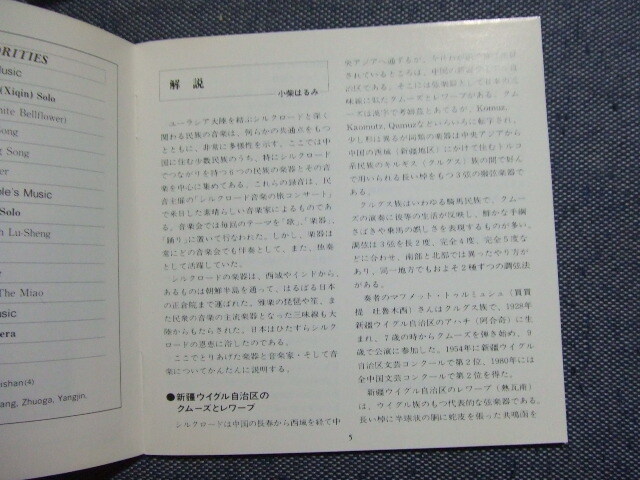 ORITIES
usic
(Xiqin) Solo
hite Bellflower)
ong
g Song
er
le's Music
Solo
h Lu-Sheng
The Miao
usic
era
ishan(4)
ang, Zhuoga, Yangjin,
解 説
小柴はるみ
ユーラシア大陸を結ぶシルクロードと深く
関わる民族の音楽は、何らかの共通点をもつ
とともに、非常に多様性を示す。ここでは中
国に住む少数民族のうち、特にシルクロード
でつながりを待つ9つの民族の楽器とその音
楽を中心に集めてある。これらの録音は、民
音主催の「シルクロード音楽の旅コンサート」
で来日した素晴らしい音楽家によるものであ
る。音楽会では毎回のテーマを「歌」、「楽器」、
「踊り」に置いて行なわれた。しかし、楽器は
常にどの音楽会でも伴奏として、また、独奏
として活躍していた。
シルクロードの楽器は、西域やインドから、
あるものは朝鮮半島を通って、はるばる日本
の正倉院まで運ばれた。雅楽の琵琶や笙、ま
た民衆の音楽の主流楽器となった三味線も大
陸からもたらされた。日本はひたすらシルク
ロードの恩恵に浴したのである。
ここでとりあげた楽器と音楽家・そして音
楽についてかんたんに説明する。
●新疆ウイグル自治区の
クムーズとレワープ
シルクロードは中国の長春から西域を経て中
央アジアへ通ずるが、
されているところは、中国の
治区である。そこには
味線に似たクムーズとレワープがある。クム
ーズは漢字で考姆茲とあてるが、Komuz,
Kaomutz, Qumuzなどいろいろに転字され、
少し形は異るが同類の楽器は中央アジアから
中国の西域（新疆地区）にかけて住むトルコ
系民族のキルギス（クルグス）族の間で好ん
で用いられる長い棹をもつ3弦の撥弦楽器で
ある。
クルグス族はいわゆる騎馬民族で、クムー
ズの演奏に彼等の生活が反映し、鮮かな手綱
さばきや乗馬の厳しさを表現するものが多い。
調弦は3弦を長2度、完全4度、完全5度な
どに合わせ、南部と北部では異ったやり方が
あり、同一地方でもおよそ2種ずつの調弦法
がある。
奏者のママメット・トゥルミュシュ（買買
提 吐魯木西）さんはクルグス族で、1928年
新疆ウイグル自治区のアハチ（阿合奇）に生
まれ、7歳の時からクムーズを弾き始め、9
歳で公演に参加した。1954年に新疆ウイグル
自治区文芸コンクールで第2位、1980年には
全中国文芸コンクールで第2位を得た。
新疆ウイグル自治区のレワープ（熱瓦甫）
は、ウイグル族のもつ代表的な弦楽器である。
長い棹に半球状の胴に蛇皮を張った共鳴面を
5